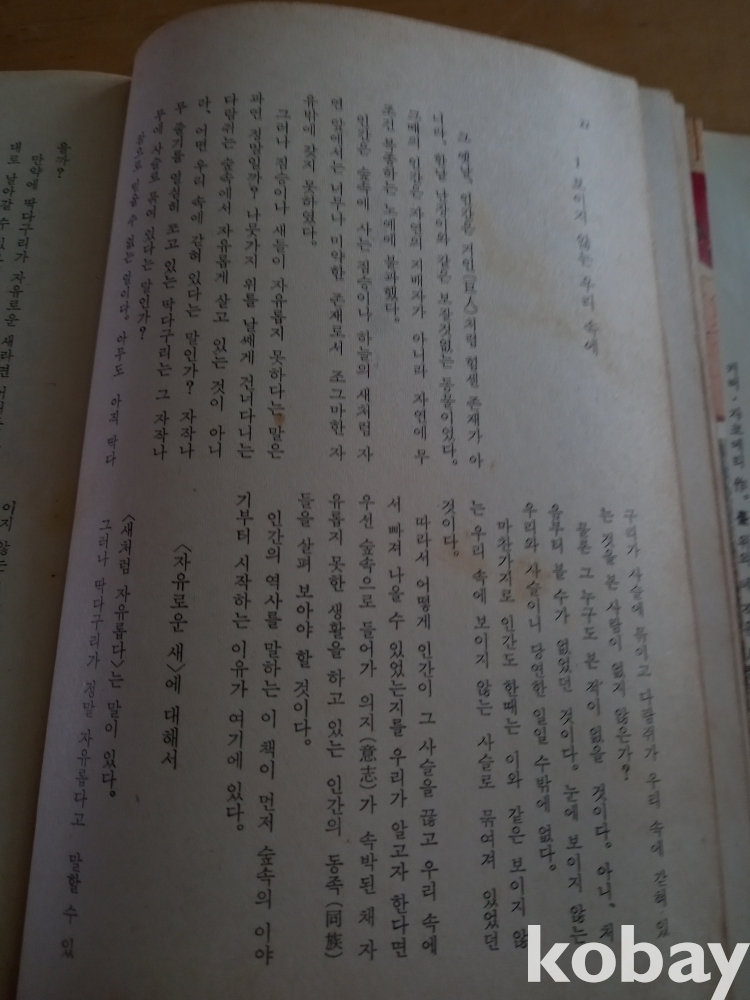 1 보이지 않는 우리 속에
그 옛날, 인간은 거인(巨人)처럼 힘센 존재가 아
니라, 한낱 난장이와 같은 보잘것없는 동물이었다.
그때의 인간은 자연의 지배자가 아니라 자연에 무
조건 복종하는 노예에 불과했다.
인간은 숲속에 사는 짐승이나 하늘의 새처럼 자
연 앞에서는 너무나 미약한 존재로서 조그마한 자
유밖에 갖지 못하였다.
그러나 짐승이나 새들이 자유롭지 못하다는 말은
과연 정말일까? 나뭇가지 위를 날쌔게 건너다니는
다람쥐는 숲속에서 자유롭게 살고 있는 것이 아니
라, 어떤 우리 속에 갇혀 있다는 말인가? 자작나
무 줄기를 열심히 쪼고 있는 딱다구리는 그 자작나
무에 사슬로 묶여 있다는 말인가?
참으로 믿을 수 없는 말이다. 아무도 아직 딱다
구리가 사슬에 묶이고 다람쥐가 우리 속에 갇혀 있
는 것을 본 사람이 없지 않은가?
물론 그 누구도 본 적이 없을 것이다. 아니, 처
음부터 볼 수가 없었던 것이다. 눈에 보이지 않는
우리와 사슬이니 당연한 일일 수밖에 없다.
마찬가지로 인간도 한때는 이와 같은 보이지 않
는 우리 속에 보이지 않는 사슬로 묶여져 있었던
것이다.
따라서 어떻게 인간이 그 사슬을 끊고 우리 속에
서 빠져 나올 수 있었는지를 우리가 알고자 한다면
우선 숲속으로 들어가 의지(意志)가 속박된 채 자
유롭지 못한 생활을 하고 있는 인간의 동족(同族)
들을 살펴 보아야 할 것이다.
인간의 역사를 말하는 이 책이 먼저 숲속의 이야
기부터 시작하는 이유가 여기에 있다.
〈자유로운 새〉에 대해서
〈새처럼 자유롭다〉는 말이 있다.
그러나 딱다구리가 정말 자유롭다고 말할 수 있
올까?
만약에 딱다구리가 자유로운 새라면
대로 날아갈 수 있
이지 않는
kobay